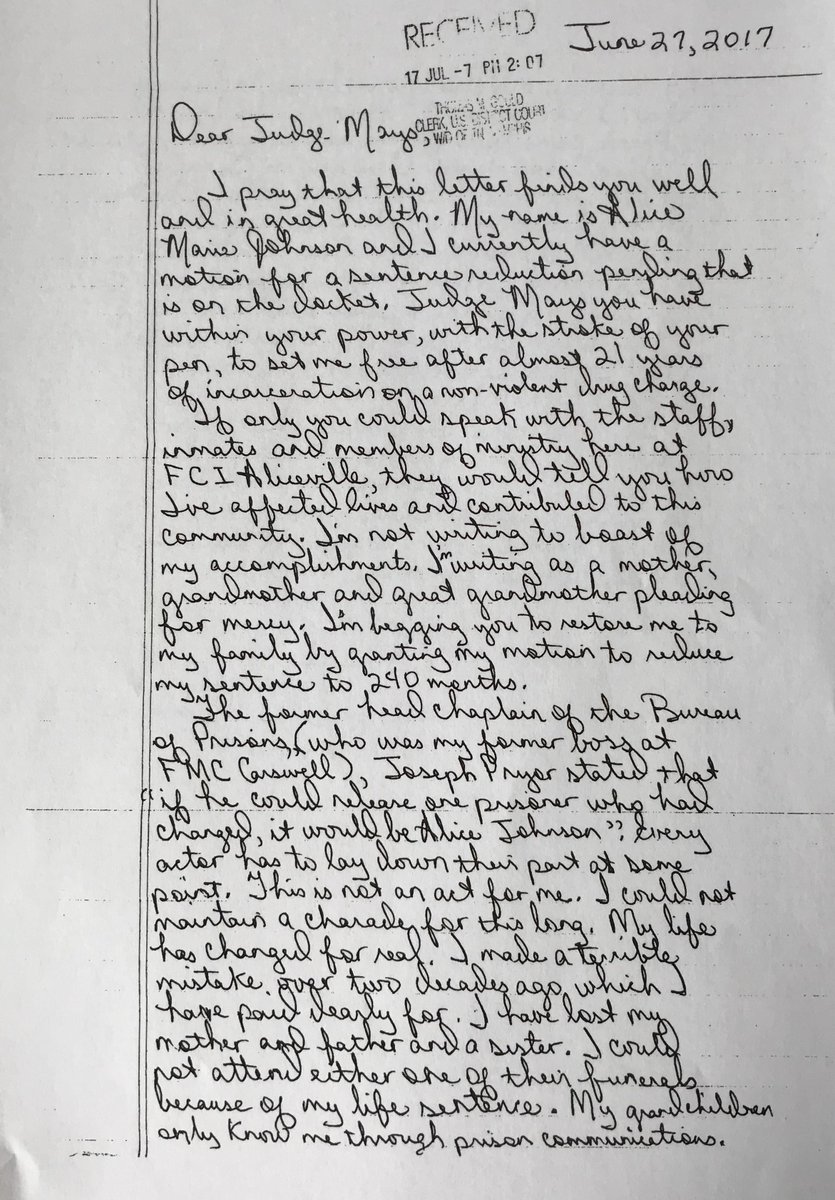 RECEIVED
June 27, 2017
17 JUL -7 PM 2:07
THOMAS M. GOULD
CLERK, U.S. DISTRICT COURT
Dear Judge Mays
I pray that this letter finds you well
and in great health. My name is Alice
Marie Johnson and I currently have a
motion for a sentence reduction pending that
is on the docket. Judge Mays you have
within your power, with the stroke of your
pen, to set me free after almost 21 years
of incarceration on a non-violent drug charge.
If only you could speak with the staff,
inmates and members of ministry here at
FCI Aliceville, they would tell you how
I've affected lives and contributed to this
community. I'm not writing to boast of
my accomplishments. I'm writing as a mother,
grandmother and great grandmother pleading
for mercy. I'm begging you to restore me to
my family by granting my motion to reduce
my sentence to 240 months.
The former head chaplain of the Bureau
of Prisons, (who was my former boss at
FMC Carswell), Joseph Pryor stated that
"if he could release one prisoner who had
changed, it would be Alice Johnson". Every
actor has to lay down their part at some
point. This is not an act for me. I could not
maintain a charade for this long. My life
has changed for real. I made a terrible
mistake over two decades ago which I
have paid dearly for. I have lost my
mother and father and a sister. I could
not attend either one of their funerals
because of my life sentence. My grandchildren
only know me through prison communications.